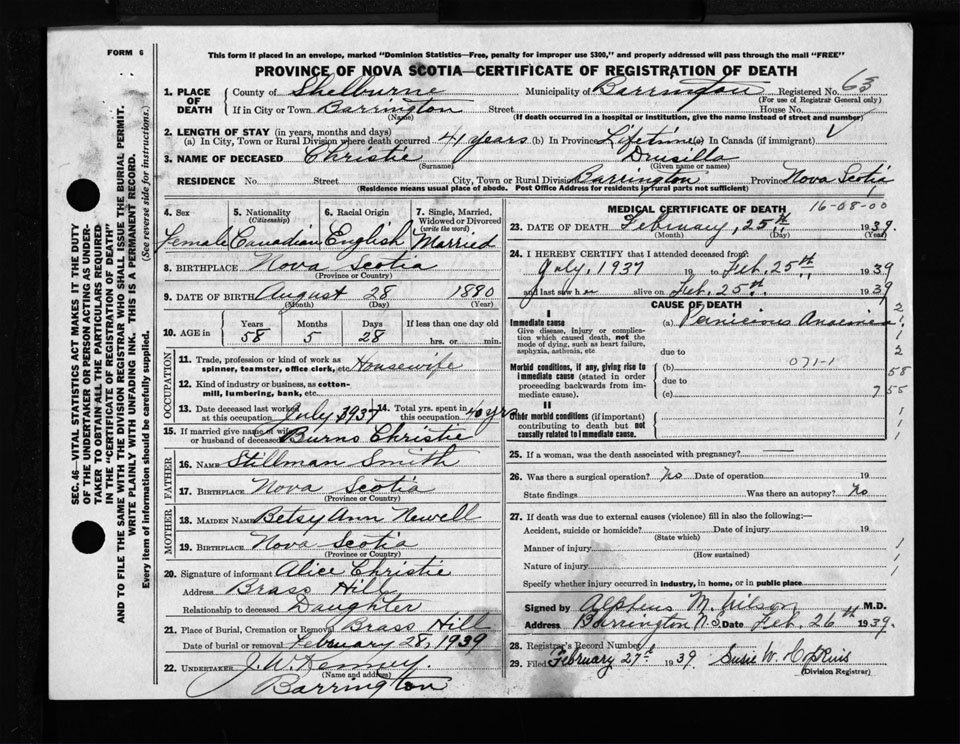 FORM 6
This form if placed in an envelope, marked "Dominion Statistics—Free, penalty for improper use $300," and properly addressed will pass through the mail "FREE"
PROVINCE OF NOVA SCOTIA—CERTIFICATE OF REGISTRATION OF DEATH
1. PLACE OF DEATH County of Shelburne Municipality of Barrington Registered No. 63
(For use of Registrar General only)
If in City or Town Barrington Street House No.
(Name) (If death occurred in a hospital or institution, give the name instead of street and number)
2. LENGTH OF STAY (in years, months and days)
(a) In City, Town or Rural Division where death occurred 41 years (b) In Province Lifetime (c) In Canada (if immigrant)
3. NAME OF DECEASED Christie Drusilla
(Surname) (Given name or names)
RESIDENCE No. Street City, Town or Rural Division Barrington Province Nova Scotia
(Residence means usual place of abode. Post Office Address for residents in rural parts not sufficient)
4. Sex 5. Nationality (Citizenship) 6. Racial Origin 7. Single, Married, Widowed or Divorced (write the word)
Female Canadian English Married
8. BIRTHPLACE Nova Scotia
(Province or Country)
9. DATE OF BIRTH August 28 1880
(Month) (Day) (Year)
10. AGE in Years Months Days If less than one day old
58 5 28 hrs. or min.
OCCUPATION
11. Trade, profession or kind of work as spinner, teamster, office clerk, etc. Housewife
12. Kind of industry or business, as cotton-mill, lumbering, bank, etc.
13. Date deceased last worked at this occupation July 1937 14. Total yrs. spent in this occupation 40 yrs
15. If married give name of wife or husband of deceased Burns Christie
FATHER
16. NAME Stillman Smith
17. BIRTHPLACE Nova Scotia
(Province or Country)
MOTHER
18. MAIDEN NAME Betsy Ann Newell
19. BIRTHPLACE Nova Scotia
(Province or Country)
20. Signature of informant Alice Christie
Address Brass Hill
Relationship to deceased Daughter
21. Place of Burial, Cremation or Removal Brass Hill
Date of burial or removal February 28, 1939
22. UNDERTAKER J. W. Kenney.
(Name and address)
Barrington
MEDICAL CERTIFICATE OF DEATH 16-08-00
23. DATE OF DEATH February, 25th 1939
(Month) (Day) (Year)
24. I HEREBY CERTIFY that I attended deceased from:
July, 1937 19 to Feb. 25th 1939
and last saw her alive on Feb. 25th 1939
CAUSE OF DEATH
I
Immediate cause (a) Pernicious Anaemia
Give disease, injury or complication which caused death, not the mode of dying, such as heart failure, asphyxia, asthenia, etc
due to
Morbid conditions, if any, giving rise to immediate cause (stated in order proceeding backwards from immediate cause).
(b) 071-1
due to
(c)
II
Other morbid conditions (if important) contributing to death but not causally related to immediate cause.
2
1
2
58
7 55
1
1
1
25. If a woman, was the death associated with pregnancy? —
26. Was there a surgical operation? No Date of operation 19
State findings Was there an autopsy? No
27. If death was due to external causes (violence) fill in also the following:—
Accident, suicide or homicide? Date of injury 19
(State which)
Manner of injury
(How sustained)
Nature of injury
Specify whether injury occurred in industry, in home, or in public place
Signed by Alpheus M. Wilson M.D.
Address Barrington N.S. Date Feb. 26th 1939.
28. Registrar's Record Number
29. Filed February 27th 1939 Susie W.
(Division Registrar)
SEC. 46—VITAL STATISTICS ACT MAKES IT THE DUTY
OF THE UNDERTAKER OR PERSON ACTING AS UNDER-
TAKER TO OBTAIN ALL THE PARTICULARS REQUIRED
IN THE "CERTIFICATE OF REGISTRATION OF DEATH"
AND TO FILE THE SAME WITH THE DIVISION REGISTRAR WHO SHALL ISSUE THE BURIAL PERMIT.
WRITE PLAINLY WITH UNFADING INK. THIS IS A PERMANENT RECORD.
Every item of information should be carefully supplied. (See reverse side for instructions.)